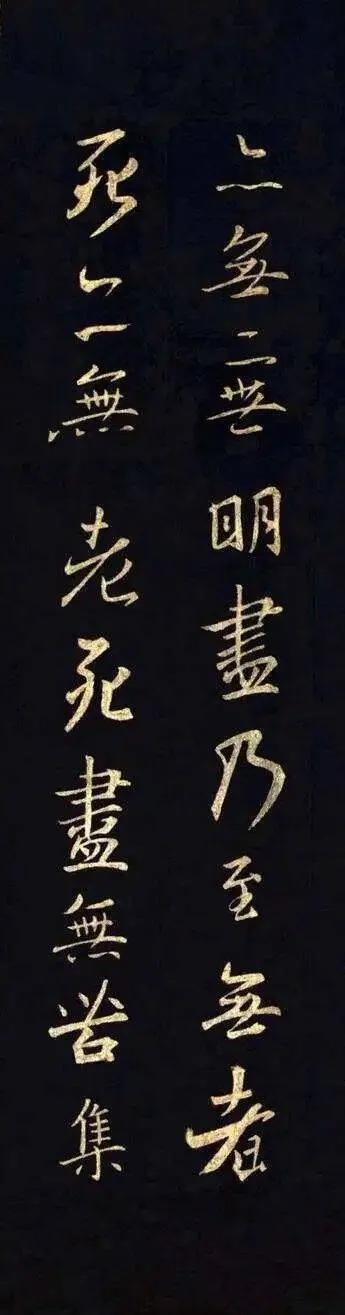 亦無無明盡乃至無者
死亦無老死盡無苦集